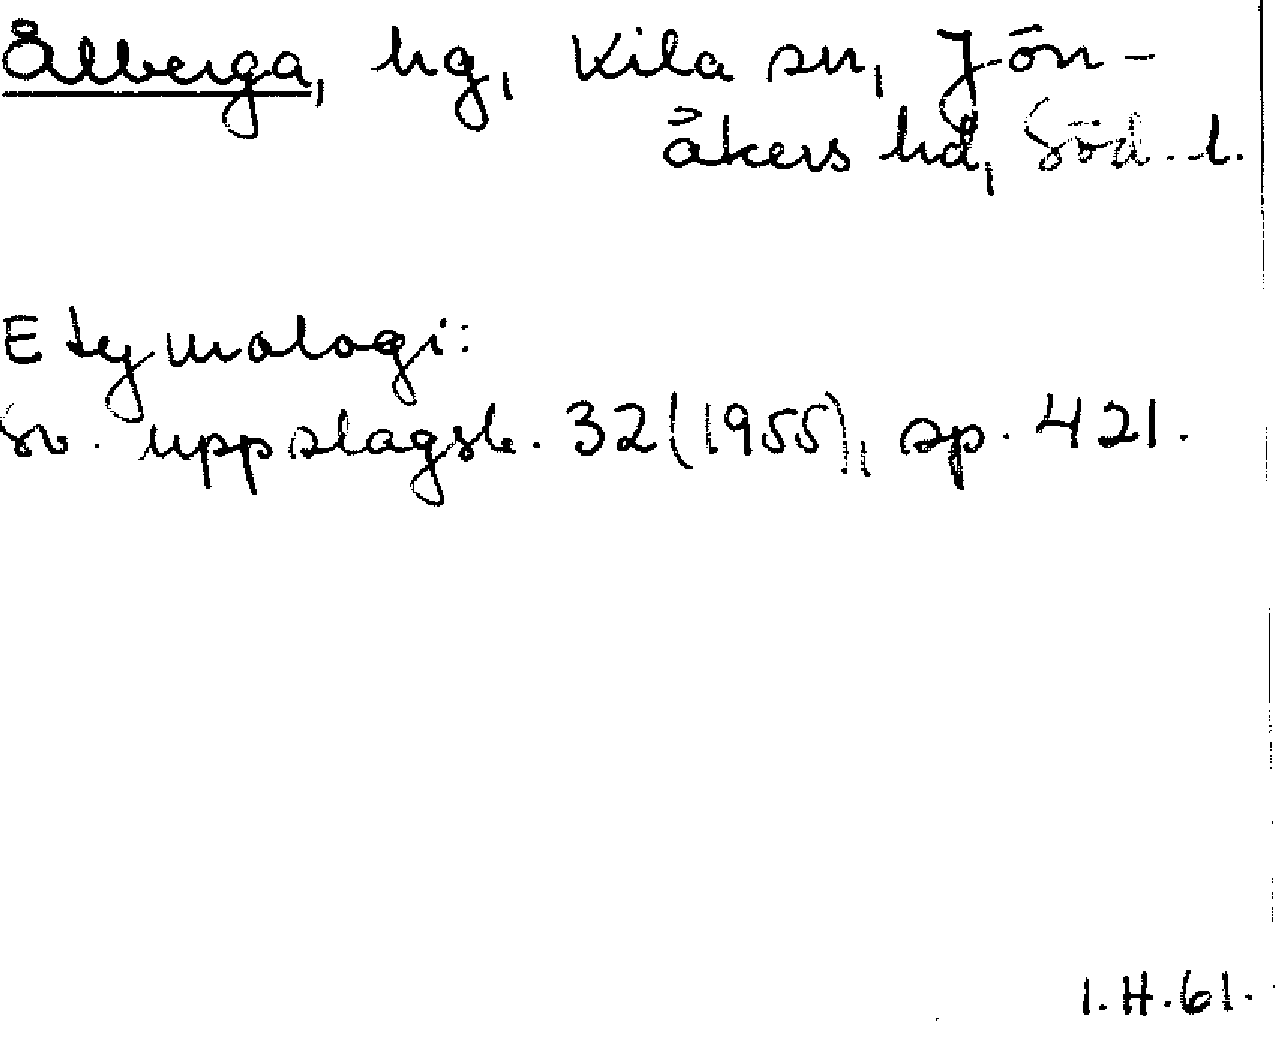 Ålberga, hg, Kila sn, Jön-
åkers hd, Söd. l.
Etymologi:
Sv. uppslagsb. 32(1955), sp. 421.
I.H.61.